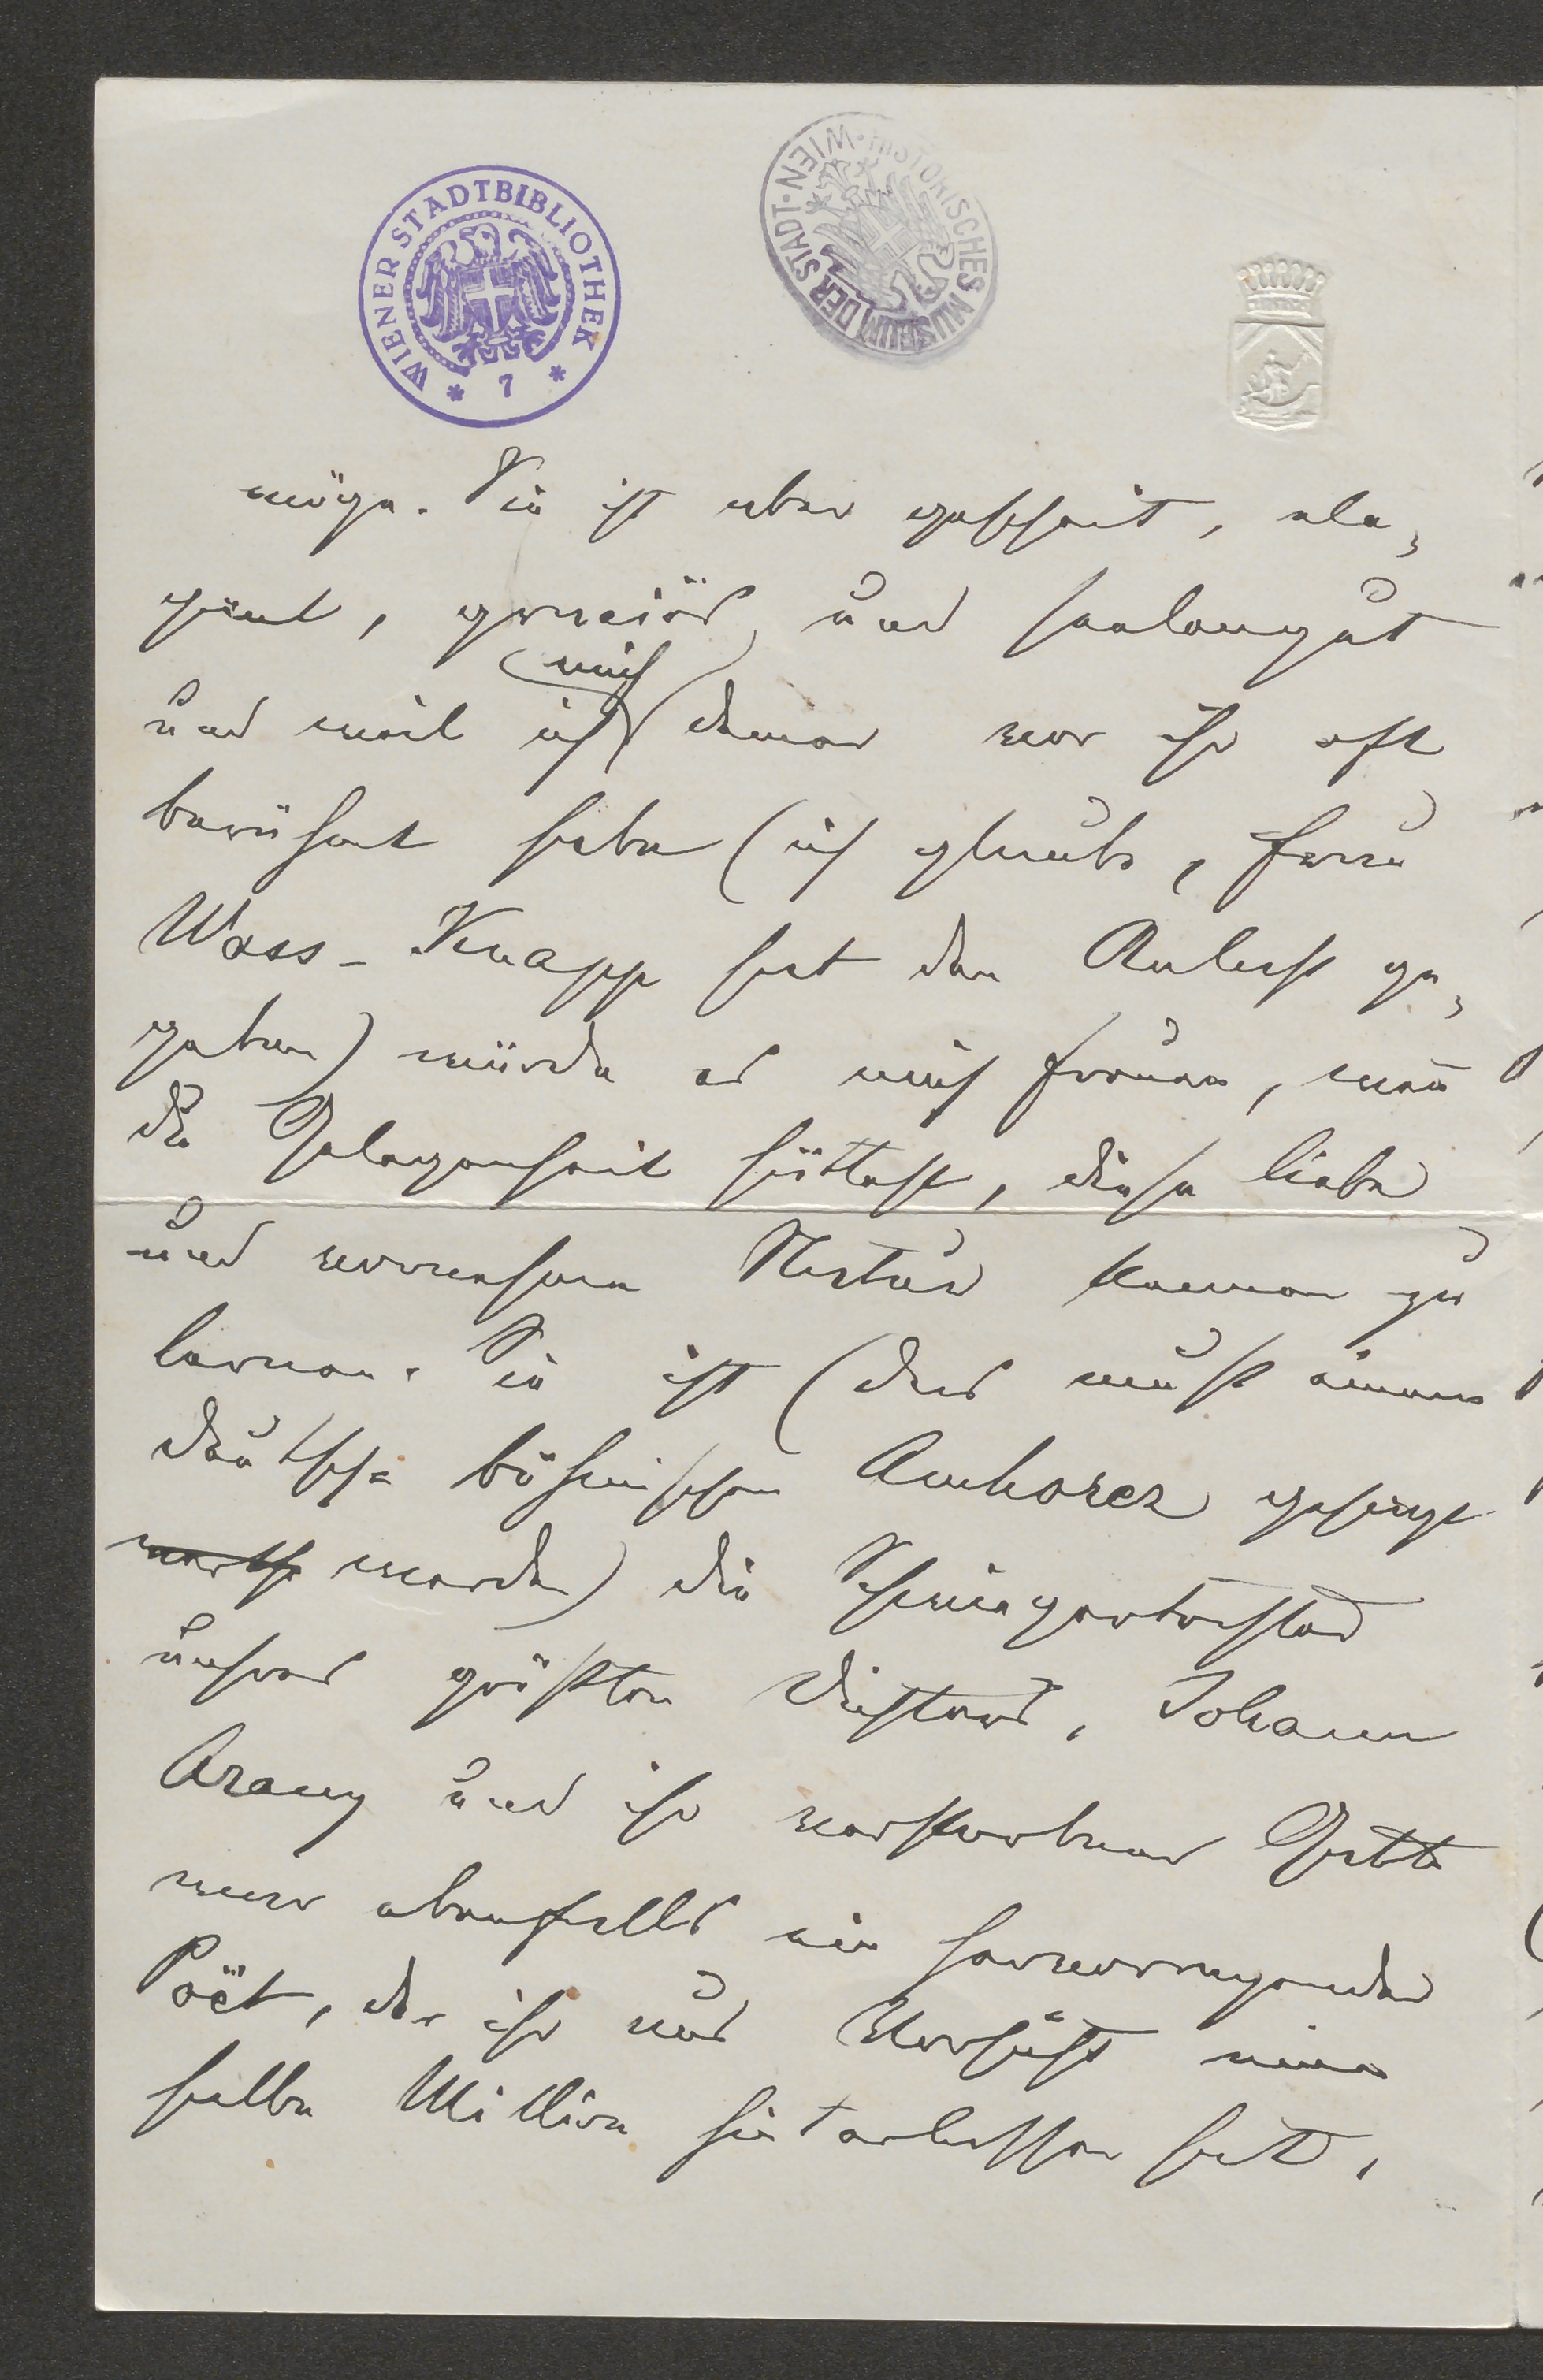 WIENER STADTBIBLIOTHEK
* 7 *
HISTORISCHES MUSEUM DER STADT WIEN
möge. Sie ist aber gescheit, ele-
gant, graciös, und seelengut
und weil ich mich Deiner vor ihr oft
berühmt habe (ich glaube, Frau
Wass-Knapp hat den Anlass ge-
geben) würde es mich freuen, wenn
Du Gelegenheit hättest, diese liebe
und vornehme Natur kennen zu
lernen. Sie ist (das muß einem
deutsch-böhmischen Amhorez gesagt
werden) die Schwiegertochter
unseres größten Dichters, Johann
Arany und ihr verstorbener Gatte
war ebenfalls ein hervorragender
Poët, der ihr eine
halbe Million hinterlassen hat,